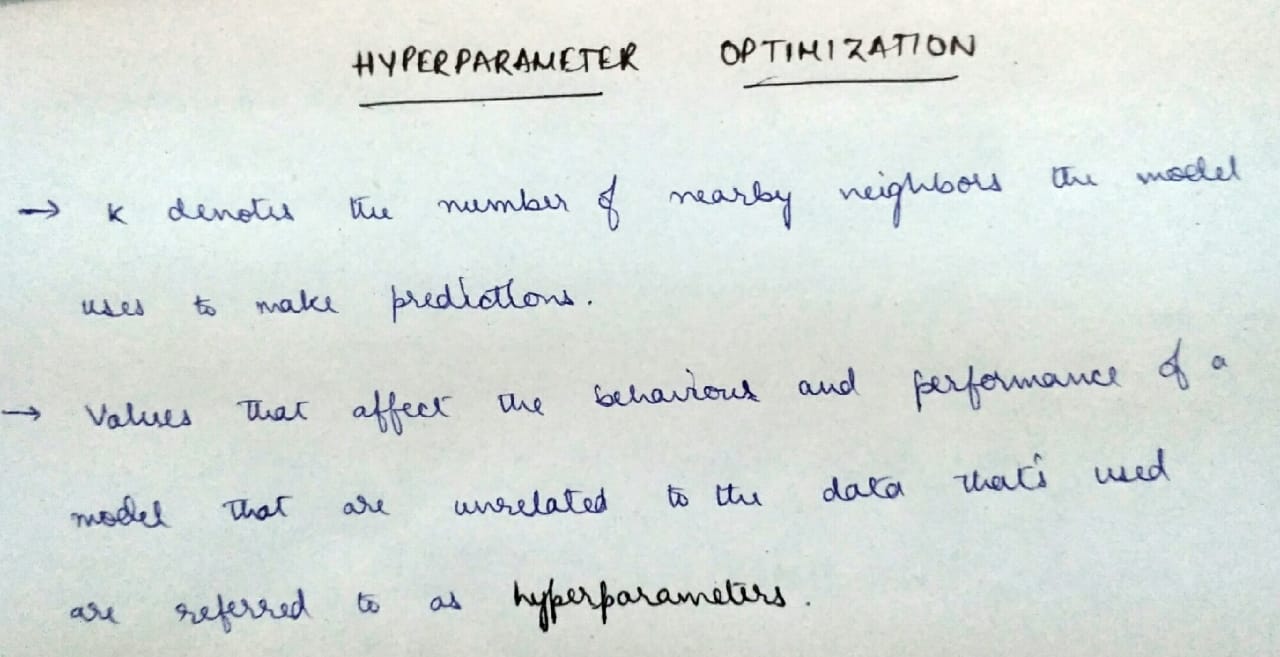 HYPERPARAMETER OPTIMIZATION
→ K denotes the number of nearby neighbors the model
uses to make predictions.
→ Values that affect the behaviour and performance of a
model that are unrelated to the data that's used
are referred to as hyperparameters.